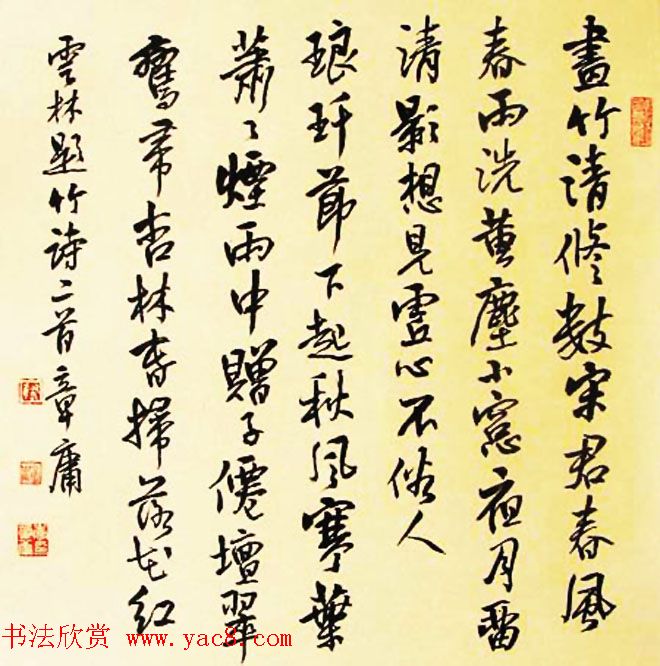 畫竹清修數宋君春風
春雨洗黄塵小窓夜月留
清影想見虚心不俗人
琅玕節下起秋風寒葉
蕭〻煙雨中贈子僊壇翠
鸞帚杏林春掃落花紅
雲林題竹詩二首章庸
书法欣赏 www.yac8.com